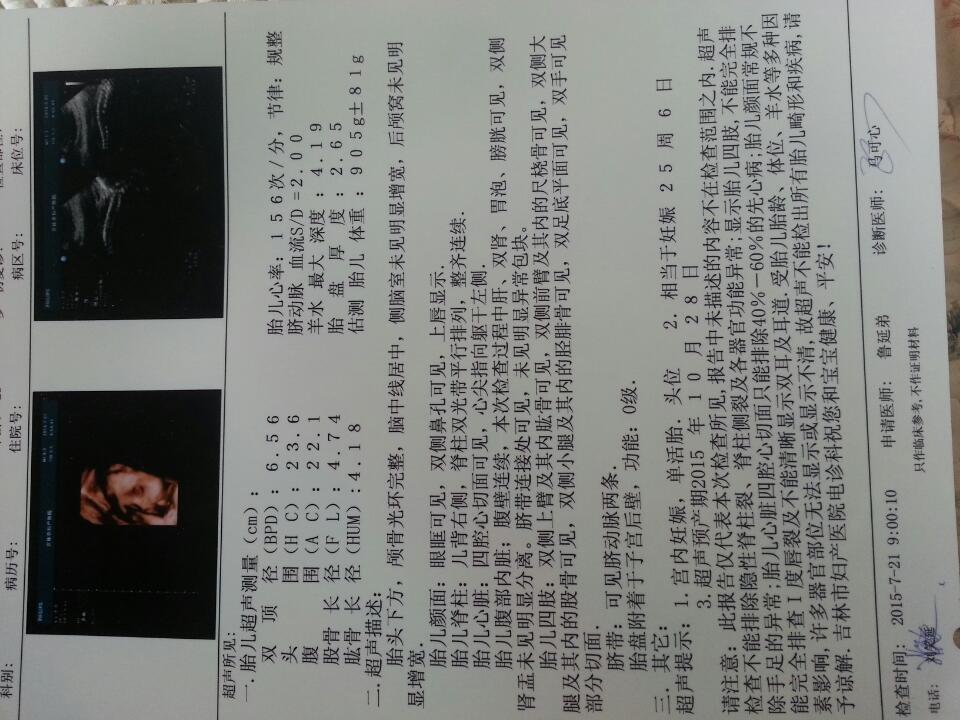 科别:
病历号:
住院号:
病区号:
床位号:
超声所见:
一.胎儿超声测量(cm):
双顶径(BPD):6.56 胎儿心率:156次/分,节律:规整
头围(HC):23.6 脐动脉血流S/D=2.00
腹围(AC):22.1 羊水最大深度:4.19
股骨长径(FL):4.74 胎盘厚度:2.65
肱骨长径(HUM):4.18 估测胎儿体重:905g±81g
二.超声描述:
胎头下方,颅骨光环完整,脑中线居中,侧脑室未见明显增宽,后颅窝未见明
显增宽.
胎儿颜面:眼眶可见,双侧鼻孔可见,上唇显示.
胎儿脊柱:儿背右侧,脊柱双光带平行排列,整齐连续.
胎儿心脏:四腔心切面可见,心尖指向躯干左侧.
胎儿腹部内脏:腹壁连续.本次检查过程中肝、双肾、胃泡、膀胱可见,双侧
肾盂未见明显分离。脐带连接处可见,未见明显异常包块.
胎儿四肢:双侧上臂及其内肱骨可见,双侧前臂及其内的尺桡骨可见,双侧大
腿及其内的股骨可见,双侧小腿及其内的胫腓骨可见,双足底平面可见,双手可见
部分切面.
脐带:可见脐动脉两条.
胎盘附着于子宫后壁,功能:0级.
三.其它:
超声提示:1.宫内妊娠,单活胎.头位 2.相当于妊娠25周6日
3.超声预产期2015年10月28日
请注意:此报告仅代表本次检查所见,报告中未描述的内容不在检查范围之内.超声
检查不能排除隐性脊柱裂、脊柱侧裂及各器官功能异常;显示胎儿四肢,不能完全排
除手足的异常;胎儿心脏四腔心切面只能排除40%-60%的先心病;胎儿颜面常规不
能完全排查I度唇裂及不能清晰显示双耳及耳道.受胎儿胎龄、体位、羊水等多种因
素影响,许多器官部位无法显示或显示不清,故超声不能检出所有胎儿畸形和疾病,请
予谅解.吉林市妇产医院电诊科祝您和宝宝健康、平安!
检查时间: 2015-7-21 9:00:10 申请医师: 鲁延弟 诊断医师: 冯可心
电话: 只作临床参考,不作证明材料